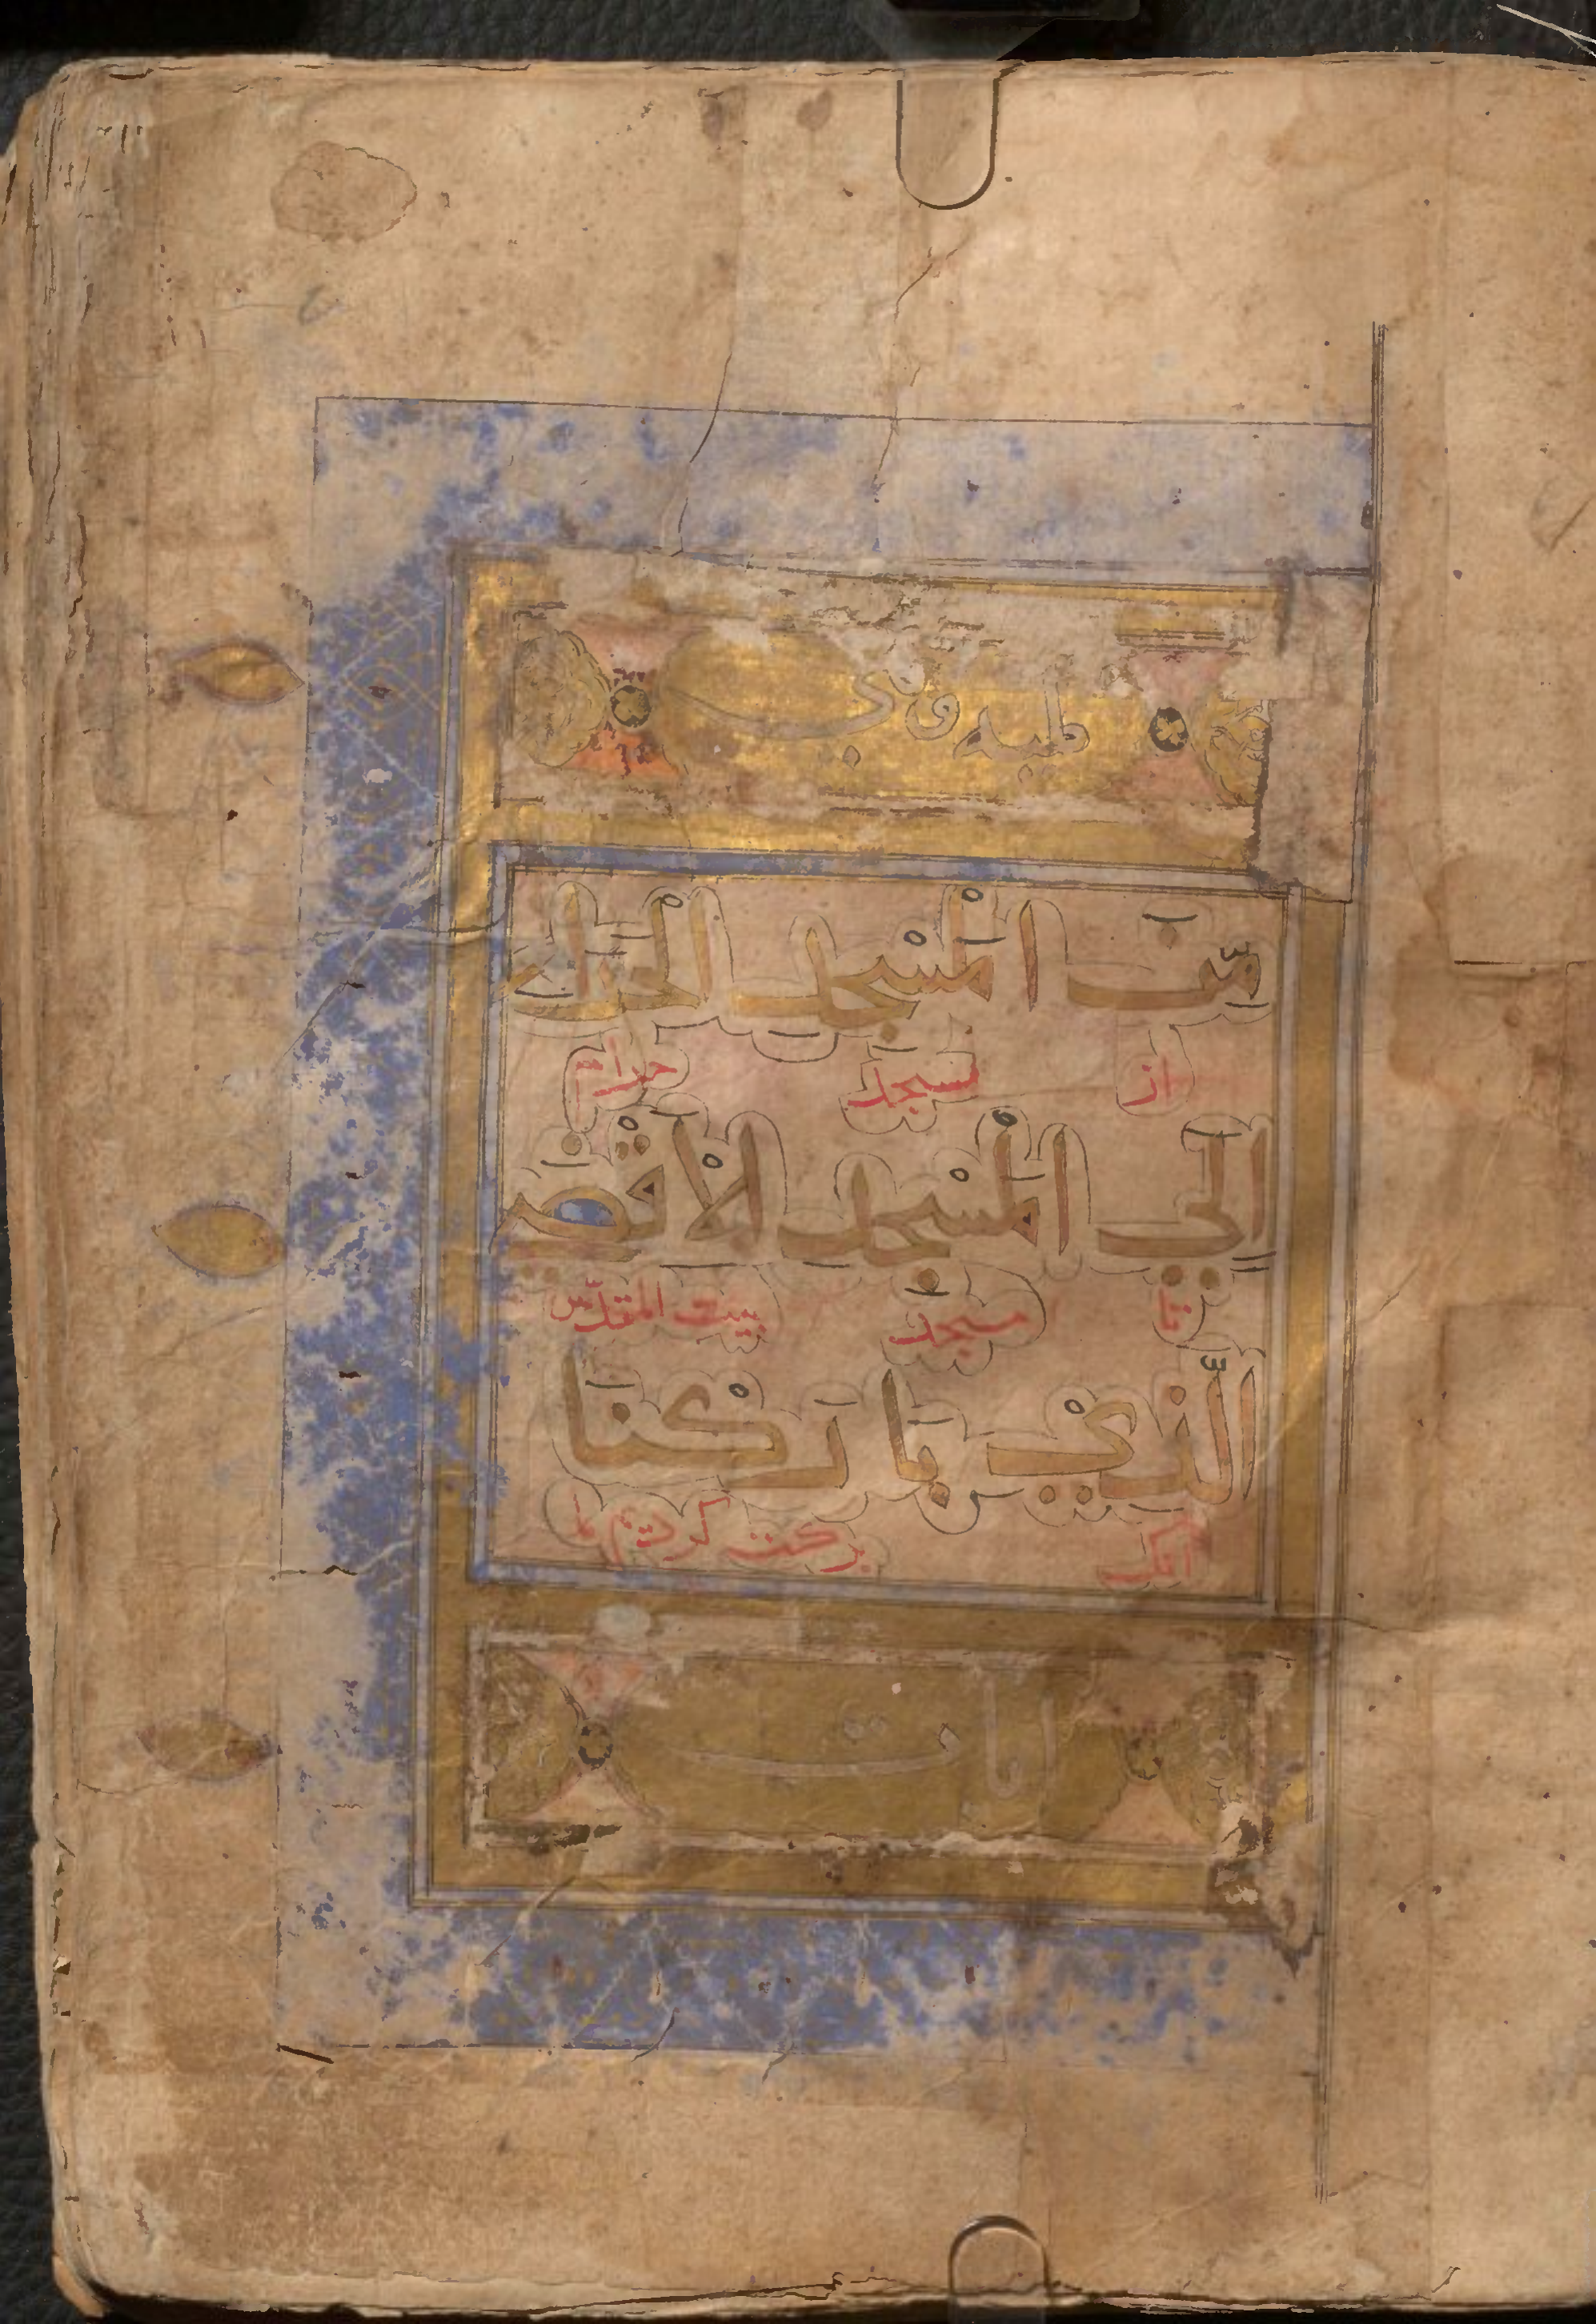 مِّنَ الْمَسْجِدِ الْحَرَامِ
از مسجد حرام
اِلَي الْمَسْجِدِ الْاَقْصَي
تا مسجد بيت المقدّس
الَّذِيْ بَارَكْنَا
آنک برکت کرديم ما